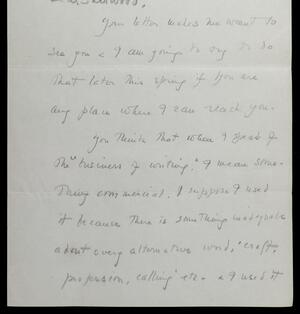 Sherwood,
Your letter makes me want to
see you & I am going to try to do
that later this spring if you are
any place where I can reach you.
You think that when I speak of
the "business of writing," I mean some-
thing commercial. I suppose I used
it because there is something inadequate
about every alternative word, "craft,
profession, calling" etc. & I used it